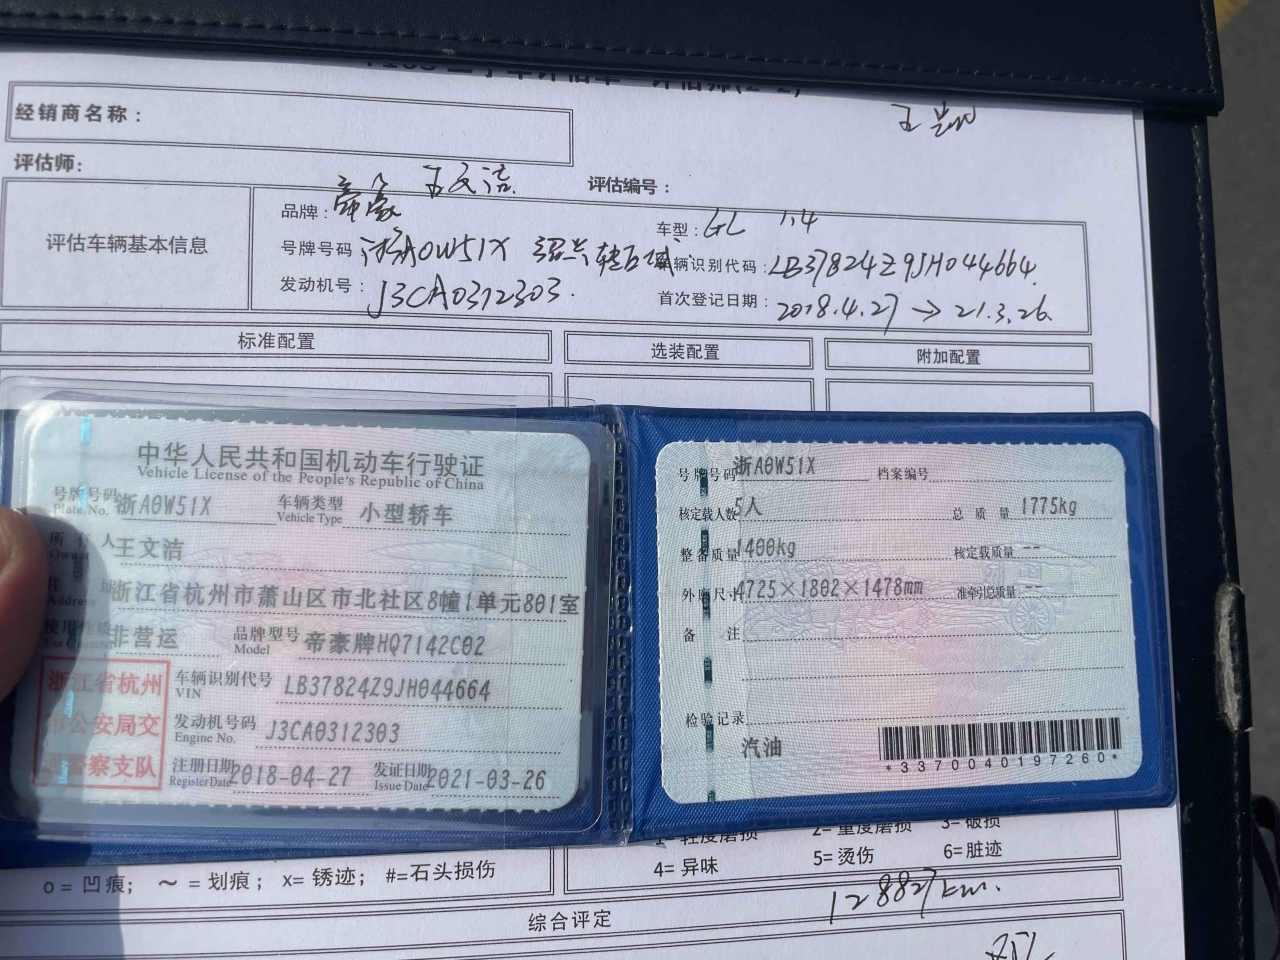 王凯
经销商名称：
评估师：
王文洁
评估编号：
评估车辆基本信息
品牌：帝豪
车型：GL 1.4
号牌号码 浙A0W51X 绍兴转石城
车辆识别代码：LB37824Z9JH044664
发动机号：J3CA0312303
首次登记日期：2018.4.27→21.3.26
标准配置
选装配置
附加配置
中华人民共和国机动车行驶证
Vehicle License of the People's Republic of China
号牌号码 浙A0W51X 车辆类型 小型轿车
Plate No. Vehicle Type
所有人 王文洁
Owner
住址 浙江省杭州市萧山区市北社区8幢1单元801室
Address
使用性质 非营运 品牌型号 帝豪牌HQ7142C02
Use Character Model
浙江省杭州
市公安局交
警察支队
车辆识别代号 LB37824Z9JH044664
VIN
发动机号码 J3CA0312303
Engine No.
注册日期 2018-04-27 发证日期 2021-03-26
Register Date Issue Date
号牌号码 浙A0W51X 档案编号
核定载人数 5人 总质量 1775kg
整备质量 1400kg 核定载质量 --
外廓尺寸 4725×1802×1478mm 准牵引总质量 --
备注
检验记录
汽油
*3370040197260*
1= 轻度磨损 2= 重度磨损 3= 破损
4= 异味 5= 烫伤 6= 脏迹
o = 凹痕； ～ = 划痕； x= 锈迹； #=石头损伤
128827km.
综合评定